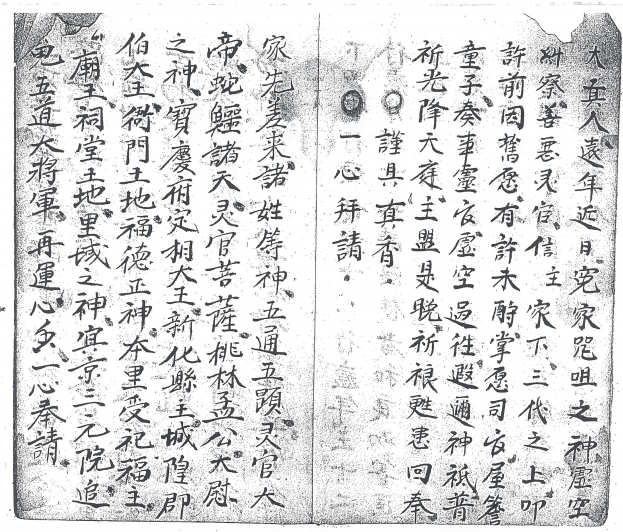 大真人遠年近日冤家咒咀之神虛空
糾察善惡灵官信主 家下三代之上叩
許前因舊愿有許未酧掌愿司官屋簷
童子奏事靈官虛空過往遐邇神祇普
祈光降天庭主盟是晚祈禳甦患回奉
謹具真香
一心拜請
家先差来諸姓等神五通五顕灵官大
帝蛇鱷諸天灵官菩薩桃林孟公大尉
之神寶慶府定栩大王新化縣主城隍郎
伯大王衙門土地福德正神本里受祀福主
廟王祠堂土地里域之神宜京三元院追
兎五道大將軍再運心香一心奉請